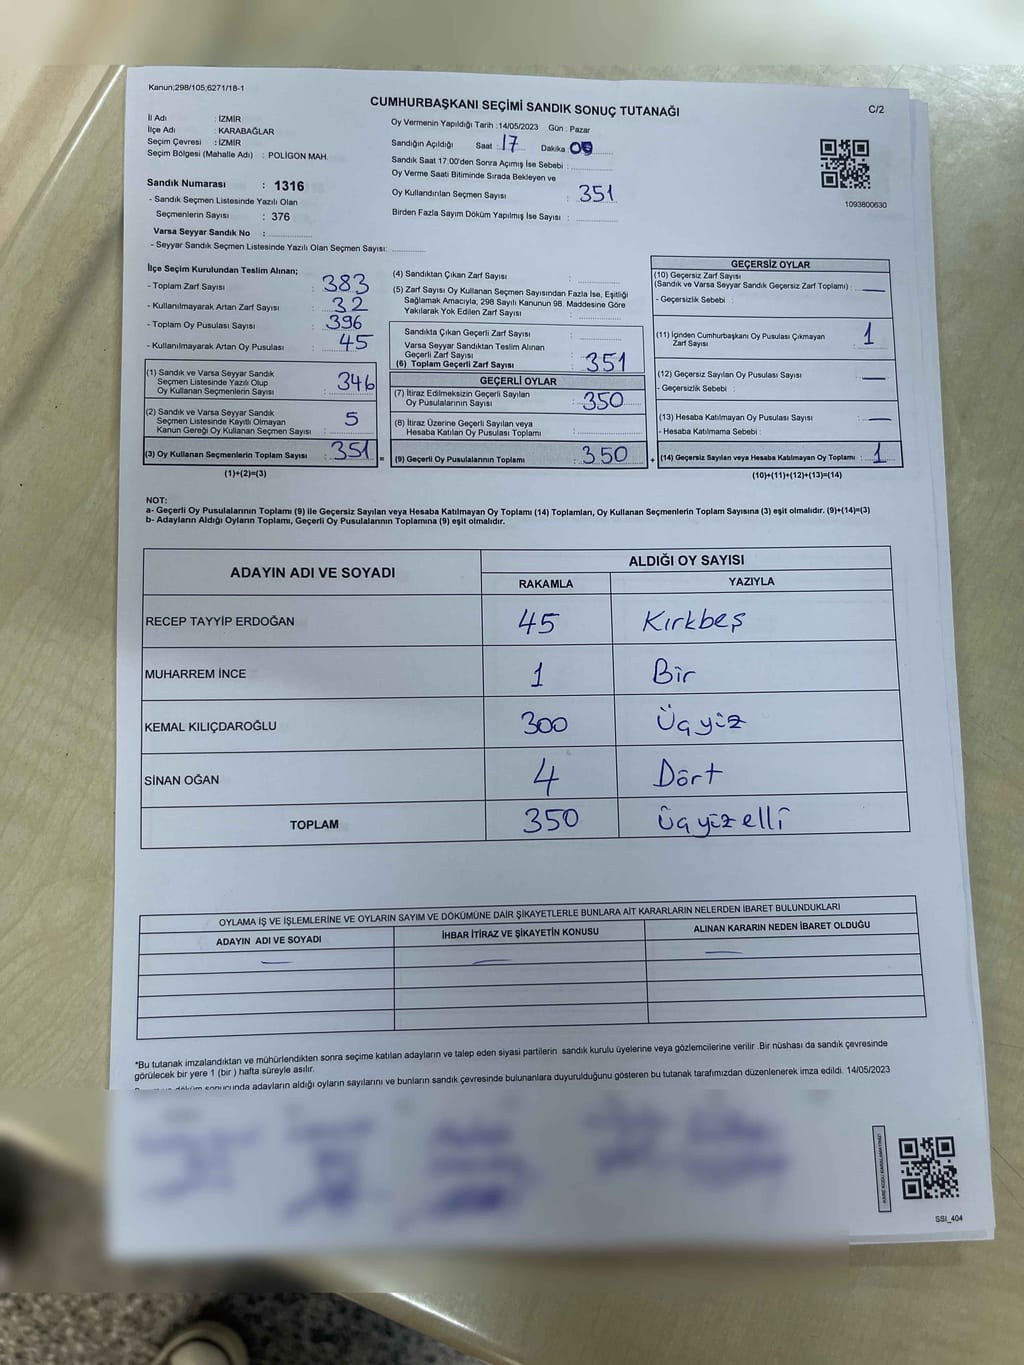 Kanun;298/105;6271/18-1
CUMHURBAŞKANI SEÇİMİ SANDIK SONUÇ TUTANAĞI
C/2
İl Adı : İZMİR
İlçe Adı : KARABAĞLAR
Seçim Çevresi : İZMİR
Seçim Bölgesi (Mahalle Adı) : POLİGON MAH.
Sandık Numarası : 1316
- Sandık Seçmen Listesinde Yazılı Olan
Seçmenlerin Sayısı : 376
Varsa Seyyar Sandık No :
- Seyyar Sandık Seçmen Listesinde Yazılı Olan Seçmen Sayısı:
Oy Vermenin Yapıldığı Tarih :14/05/2023 Gün : Pazar
Sandığın Açıldığı Saat : 17 Dakika :
Sandık Saat 17:00'den Sonra Açımış İse Sebebi :
Oy Verme Saati Bitiminde Sırada Bekleyen ve
Oy Kullandırılan Seçmen Sayısı : 351
Birden Fazla Sayım Döküm Yapılmış İse Sayısı :
1093800630
İlçe Seçim Kurulundan Teslim Alınan;
- Toplam Zarf Sayısı : 383
- Kullanılmayarak Artan Zarf Sayısı : 32
- Toplam Oy Pusulası Sayısı : 396
- Kullanılmayarak Artan Oy Pusulası : 45
(1) Sandık ve Varsa Seyyar Sandık
Seçmen Listesinde Yazılı Olup
Oy Kullanan Seçmenlerin Sayısı : 346
(2) Sandık ve Varsa Seyyar Sandık
Seçmen Listesinde Kayıtlı Olmayan
Kanun Gereği Oy Kullanan Seçmen Sayısı : 5
(3) Oy Kullanan Seçmenlerin Toplam Sayısı : 351 =
(1)+(2)=(3)
(4) Sandıktan Çıkan Zarf Sayısı :
(5) Zarf Sayısı Oy Kullanan Seçmen Sayısından Fazla İse, Eşitliği
Sağlamak Amacıyla; 298 Sayılı Kanunun 98. Maddesine Göre
Yakılarak Yok Edilen Zarf Sayısı :
Sandıkta Çıkan Geçerli Zarf Sayısı :
Varsa Seyyar Sandıktan Teslim Alınan
Geçerli Zarf Sayısı :
(6) Toplam Geçerli Zarf Sayısı : 351
GEÇERLİ OYLAR
(7) İtiraz Edilmeksizin Geçerli Sayılan
Oy Pusulalarının Sayısı : 350
(8) İtiraz Üzerine Geçerli Sayılan veya
Hesaba Katılan Oy Pusulası Toplamı :
(9) Geçerli Oy Pusulalarının Toplamı : 350 +
GEÇERSİZ OYLAR
(10) Geçersiz Zarf Sayısı
(Sandık ve Varsa Seyyar Sandık Geçersiz Zarf Toplamı) : —
- Geçersizlik Sebebi :
(11) İçinden Cumhurbaşkanı Oy Pusulası Çıkmayan
Zarf Sayısı : 1
(12) Geçersiz Sayılan Oy Pusulası Sayısı : —
- Geçersizlik Sebebi :
(13) Hesaba Katılmayan Oy Pusulası Sayısı : —
- Hesaba Katılmama Sebebi :
(14) Geçersiz Sayılan veya Hesaba Katılmayan Oy Toplamı : 1
(10)+(11)+(12)+(13)=(14)
NOT:
a- Geçerli Oy Pusulalarının Toplamı (9) ile Geçersiz Sayılan veya Hesaba Katılmayan Oy Toplamı (14) Toplamları, Oy Kullanan Seçmenlerin Toplam Sayısına (3) eşit olmalıdır. (9)+(14)=(3)
b- Adayların Aldığı Oyların Toplamı, Geçerli Oy Pusulalarının Toplamına (9) eşit olmalıdır.
ADAYIN ADI VE SOYADI
ALDIĞI OY SAYISI
RAKAMLA YAZIYLA
RECEP TAYYİP ERDOĞAN 45 Kırkbeş
MUHARREM İNCE 1 Bir
KEMAL KILIÇDAROĞLU 300 Üçyüz
SİNAN OĞAN 4 Dört
TOPLAM 350 Üçyüzelli
OYLAMA İŞ VE İŞLEMLERİNE VE OYLARIN SAYIM VE DÖKÜMÜNE DAİR ŞİKAYETLERLE BUNLARA AİT KARARLARIN NELERDEN İBARET BULUNDUKLARI
ADAYIN ADI VE SOYADI İHBAR İTİRAZ VE ŞİKAYETİN KONUSU ALINAN KARARIN NEDEN İBARET OLDUĞU
— — —
*Bu tutanak imzalandıktan ve mühürlendikten sonra seçime katılan adayların ve talep eden siyasi partilerin sandık kurulu üyelerine veya gözlemcilerine verilir .Bir nüshası da sandık çevresinde
görülecek bir yere 1 (bir ) hafta süreyle asılır.
sonucunda adayların aldığı oyların sayılarını ve bunların sandık çevresinde bulunanlara duyurulduğunu gösteren bu tutanak tarafımızdan düzenlenerek imza edildi. 14/05/2023
SSI_404